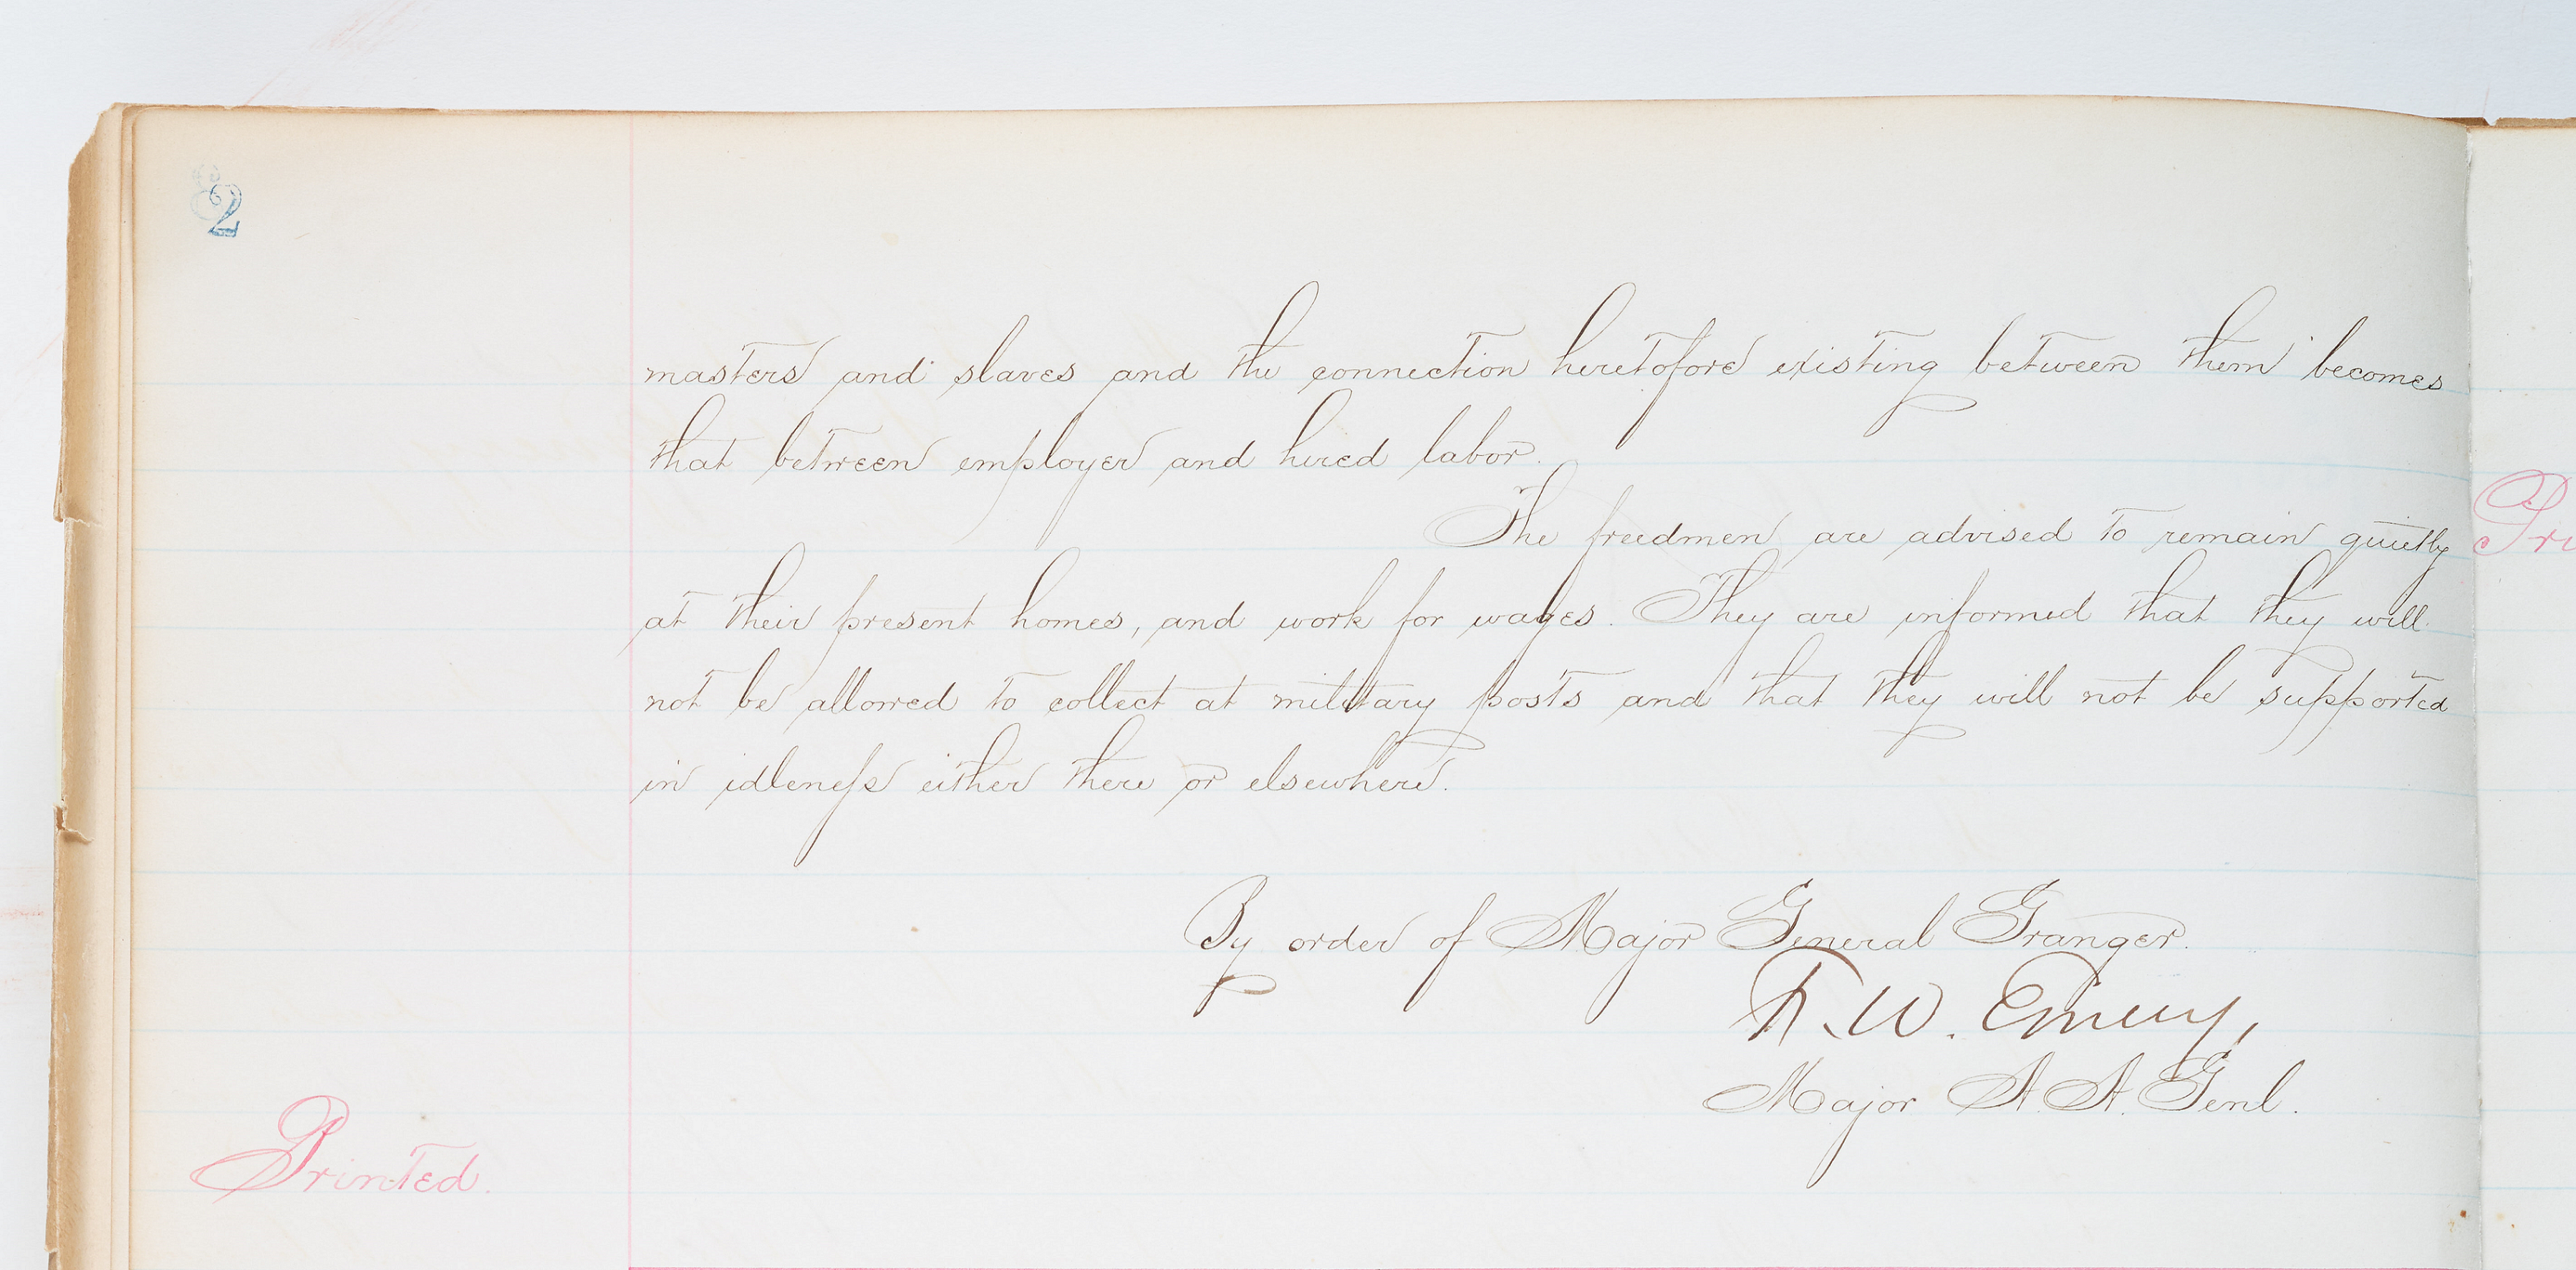 2
masters and slaves and the connection heretofore existing between them becomes
that between employer and hired labor.
The freedmen are advised to remain quietly
at their present homes, and work for wages. They are informed that they will
not be allowed to collect at military posts and that they will not be supported
in idleness either there or elsewhere.
By order of Major General Granger.
F. W. Emery,
Major A. A. Genl.
Printed.
Pri